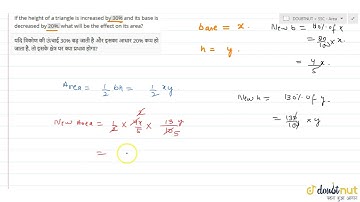 DOUBTNUT - SSC - Area
If the height of a triangle is increased by 30% and its base is
decreased by 20% what will be the effect on its area?
यदि त्रिकोण की ऊंचाई 30% बढ़ जाती है और इसका आधार 20% कम हो
जाता है, तो इसके क्षेत्र पर क्या प्रभाव होगा?
base = x.
h = y.
New b = 80% of x
= 80/100 × x.
= 4/5 x.
New h = 130% of y.
= 130/100 × y
Area = 1/2 bh = 1/2 xy.
New Area = 1/2 × 4x/5 × 13 y/10 5
=
doubtnut